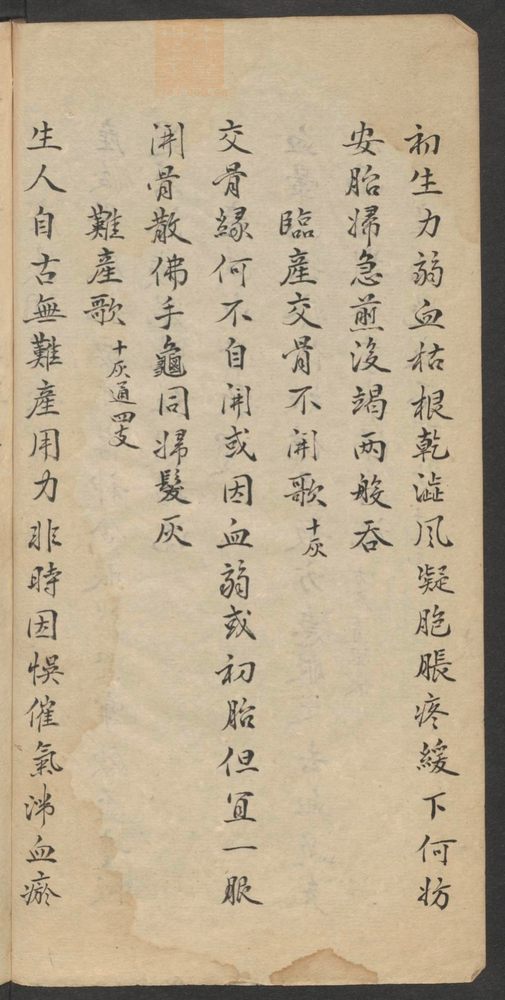 初生力弱血枯根乾澁风凝胞脹疼緩下何妨
安胎婦急煎没竭两般吞
臨產交骨不開歌十灰
交骨緣何不自開或因血弱或初胎但宜一服
開骨散佛手龜同婦髮灰
難產歌十灰通四支
生人自古無難產用力非時因悞催氣滞血瘀